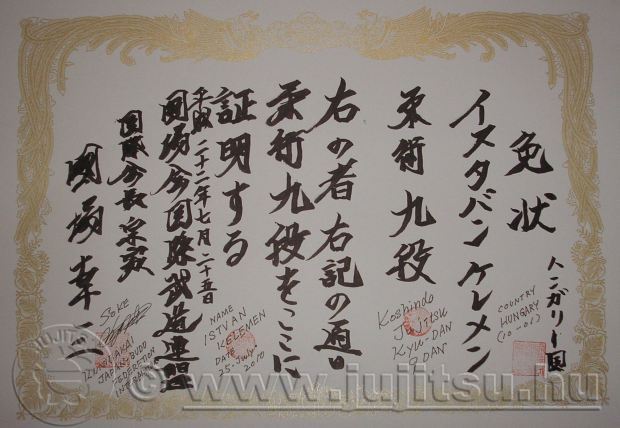 免状
ハンガリー国
COUNTRY
HUNGARY
(10-01)
イスタバン ケレメン
柔術 九段
Koshindo
Jujitsu
KYU-DAN
9 DAN
右の者右記の通り
柔術九段をここに
証明する
NAME
ISTVAN
KELEMEN
DATE
25-July 2010
平成二十二年七月二十五日
國場会国際武道連盟
国際会長 宗家
國場幸三
SOKE
KUNIBAKAI
JAPAN BUDO
FEDERETION
© www.jujitsu.hu